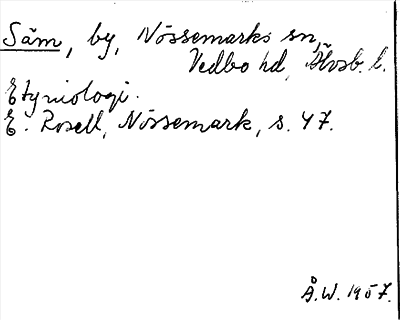 Säm, by, Nössemarks sn,
Vedbo hd, Älvsb. l.
Etymologi.
E. Rosell, Nössemark, s. 47.
Å.W. 1957.